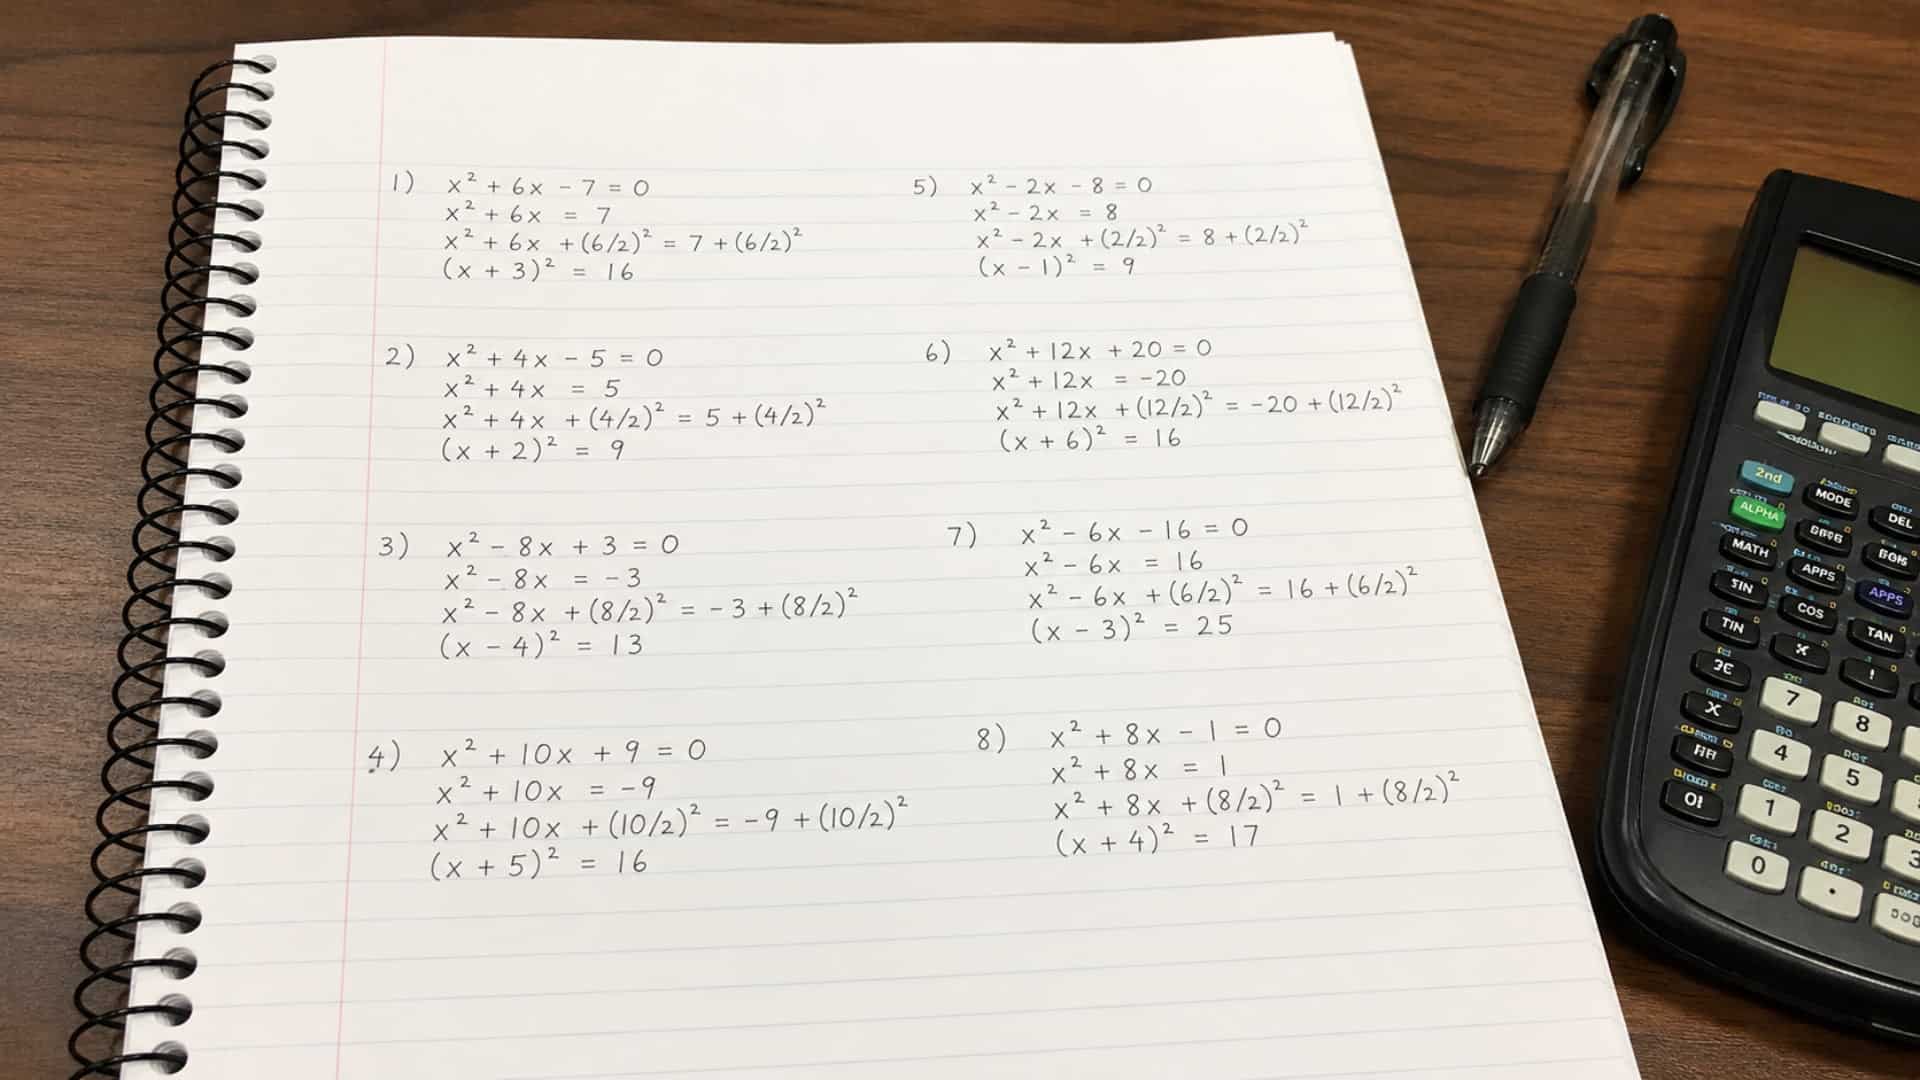 1) x² + 6x - 7 = 0
x² + 6x = 7
x² + 6x + (6/2)² = 7 + (6/2)²
(x + 3)² = 16
2) x² + 4x - 5 = 0
x² + 4x = 5
x² + 4x + (4/2)² = 5 + (4/2)²
(x + 2)² = 9
3) x² - 8x + 3 = 0
x² - 8x = -3
x² - 8x + (8/2)² = -3 + (8/2)²
(x - 4)² = 13
4) x² + 10x + 9 = 0
x² + 10x = -9
x² + 10x + (10/2)² = -9 + (10/2)²
(x + 5)² = 16
5) x² - 2x - 8 = 0
x² - 2x = 8
x² - 2x + (2/2)² = 8 + (2/2)²
(x - 1)² = 9
6) x² + 12x + 20 = 0
x² + 12x = -20
x² + 12x + (12/2)² = -20 + (12/2)²
(x + 6)² = 16
7) x² - 6x - 16 = 0
x² - 6x = 16
x² - 6x + (6/2)² = 16 + (6/2)²
(x - 3)² = 25
8) x² + 8x - 1 = 0
x² + 8x = 1
x² + 8x + (8/2)² = 1 + (8/2)²
(x + 4)² = 17
2nd MODE DEL
ALPHA
MATH APPS APPS
COS TAN
TIN
7 8
4 5
1 2 3
0 .